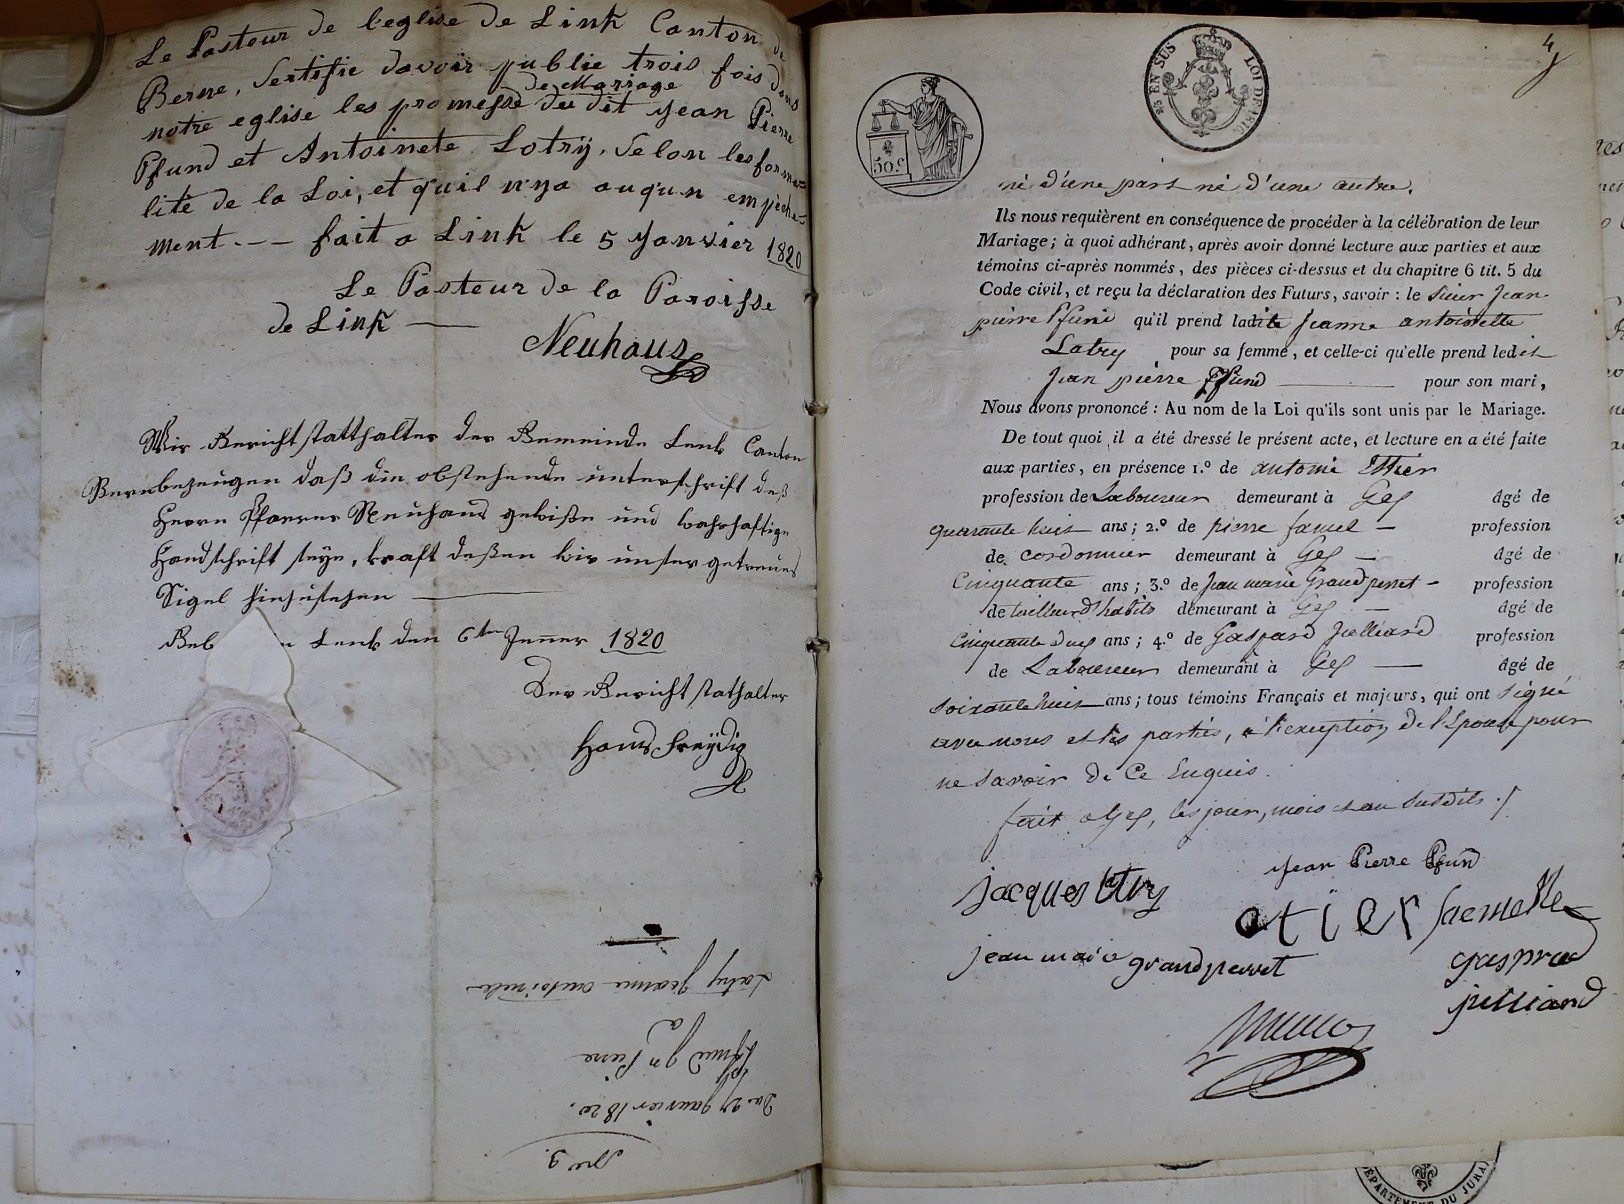 Le Pasteur de leglise de Link Canton de
Berne, Sertifie davoir publie trois fois dans
de Mariage
notre eglise les promesse du dit jean Pierre
Pfund et Antoinete Lotrÿ, Selon les forma=
lité de la Loi, et qu'il n'ya auqun empèche=
ment. -- fait a Link le 5 Janvier 1820
Le Pasteur de la Paroisse
de Link
Neuhaus
Wir Gerichtstatthalter der Gemeinde Lenk Canton
Bern bezeugen daß die obstehende unterschrift deß
Herrn Pfarrer Neuhaus gewiße und wahrhaftige
Handschrift seye, kraft deßen wir unser getreues
Sigel hinzusetzen
Geb Lenk den 6ten Jenner 1820
Der Gerichtstathalter
Hans Freÿdig
Latry Jeanne antoinette
a
Pfund Jn Pierre
Du 27 janvier 1820.
No 3
4
25 EN SUS LOI DE 1816
50.C
né d'une part né d'une autre.
Ils nous requièrent en conséquence de procéder à la célébration de leur
Mariage; à quoi adhérant, après avoir donné lecture aux parties et aux
témoins ci-après nommés, des pièces ci-dessus et du chapitre 6 tit. 5 du
Code civil, et reçu la déclaration des Futurs, savoir : le sieur Jean
pierre Pfund qu'il prend ladite Jeanne antoinette
Latry pour sa femme, et celle-ci qu'elle prend ledit
Jean pierre Pfund pour son mari,
Nous avons prononcé : Au nom de la Loi qu'ils sont unis par le Mariage.
De tout quoi il a été dressé le présent acte, et lecture en a été faite
aux parties, en présence 1.º de antoine Ethier
profession de Laboureur demeurant à Gex âgé de
quarante huit ans; 2.º de pierre famel profession
de cordonnier demeurant à Gex âgé de
Cinquante ans; 3.º de Jean marie Grandperret profession
de tailleur d'habits demeurant à Gex âgé de
Cinquante deux ans; 4.º de Gaspard Julliard profession
de Laboureur demeurant à Gex âgé de
Soixante huit ans; tous témoins Français et majeurs, qui ont signé
avec nous et les parties, à l'exception de l'Epouse pour
ne Savoir de Ce Enquis.
fait a Gex, les jour, mois et an Susdits ./
Jean Pierre Pfund
jacques latry
etier
jean marie grandperret
gasprad
julliard
DÉPARTEMENT DU JURA